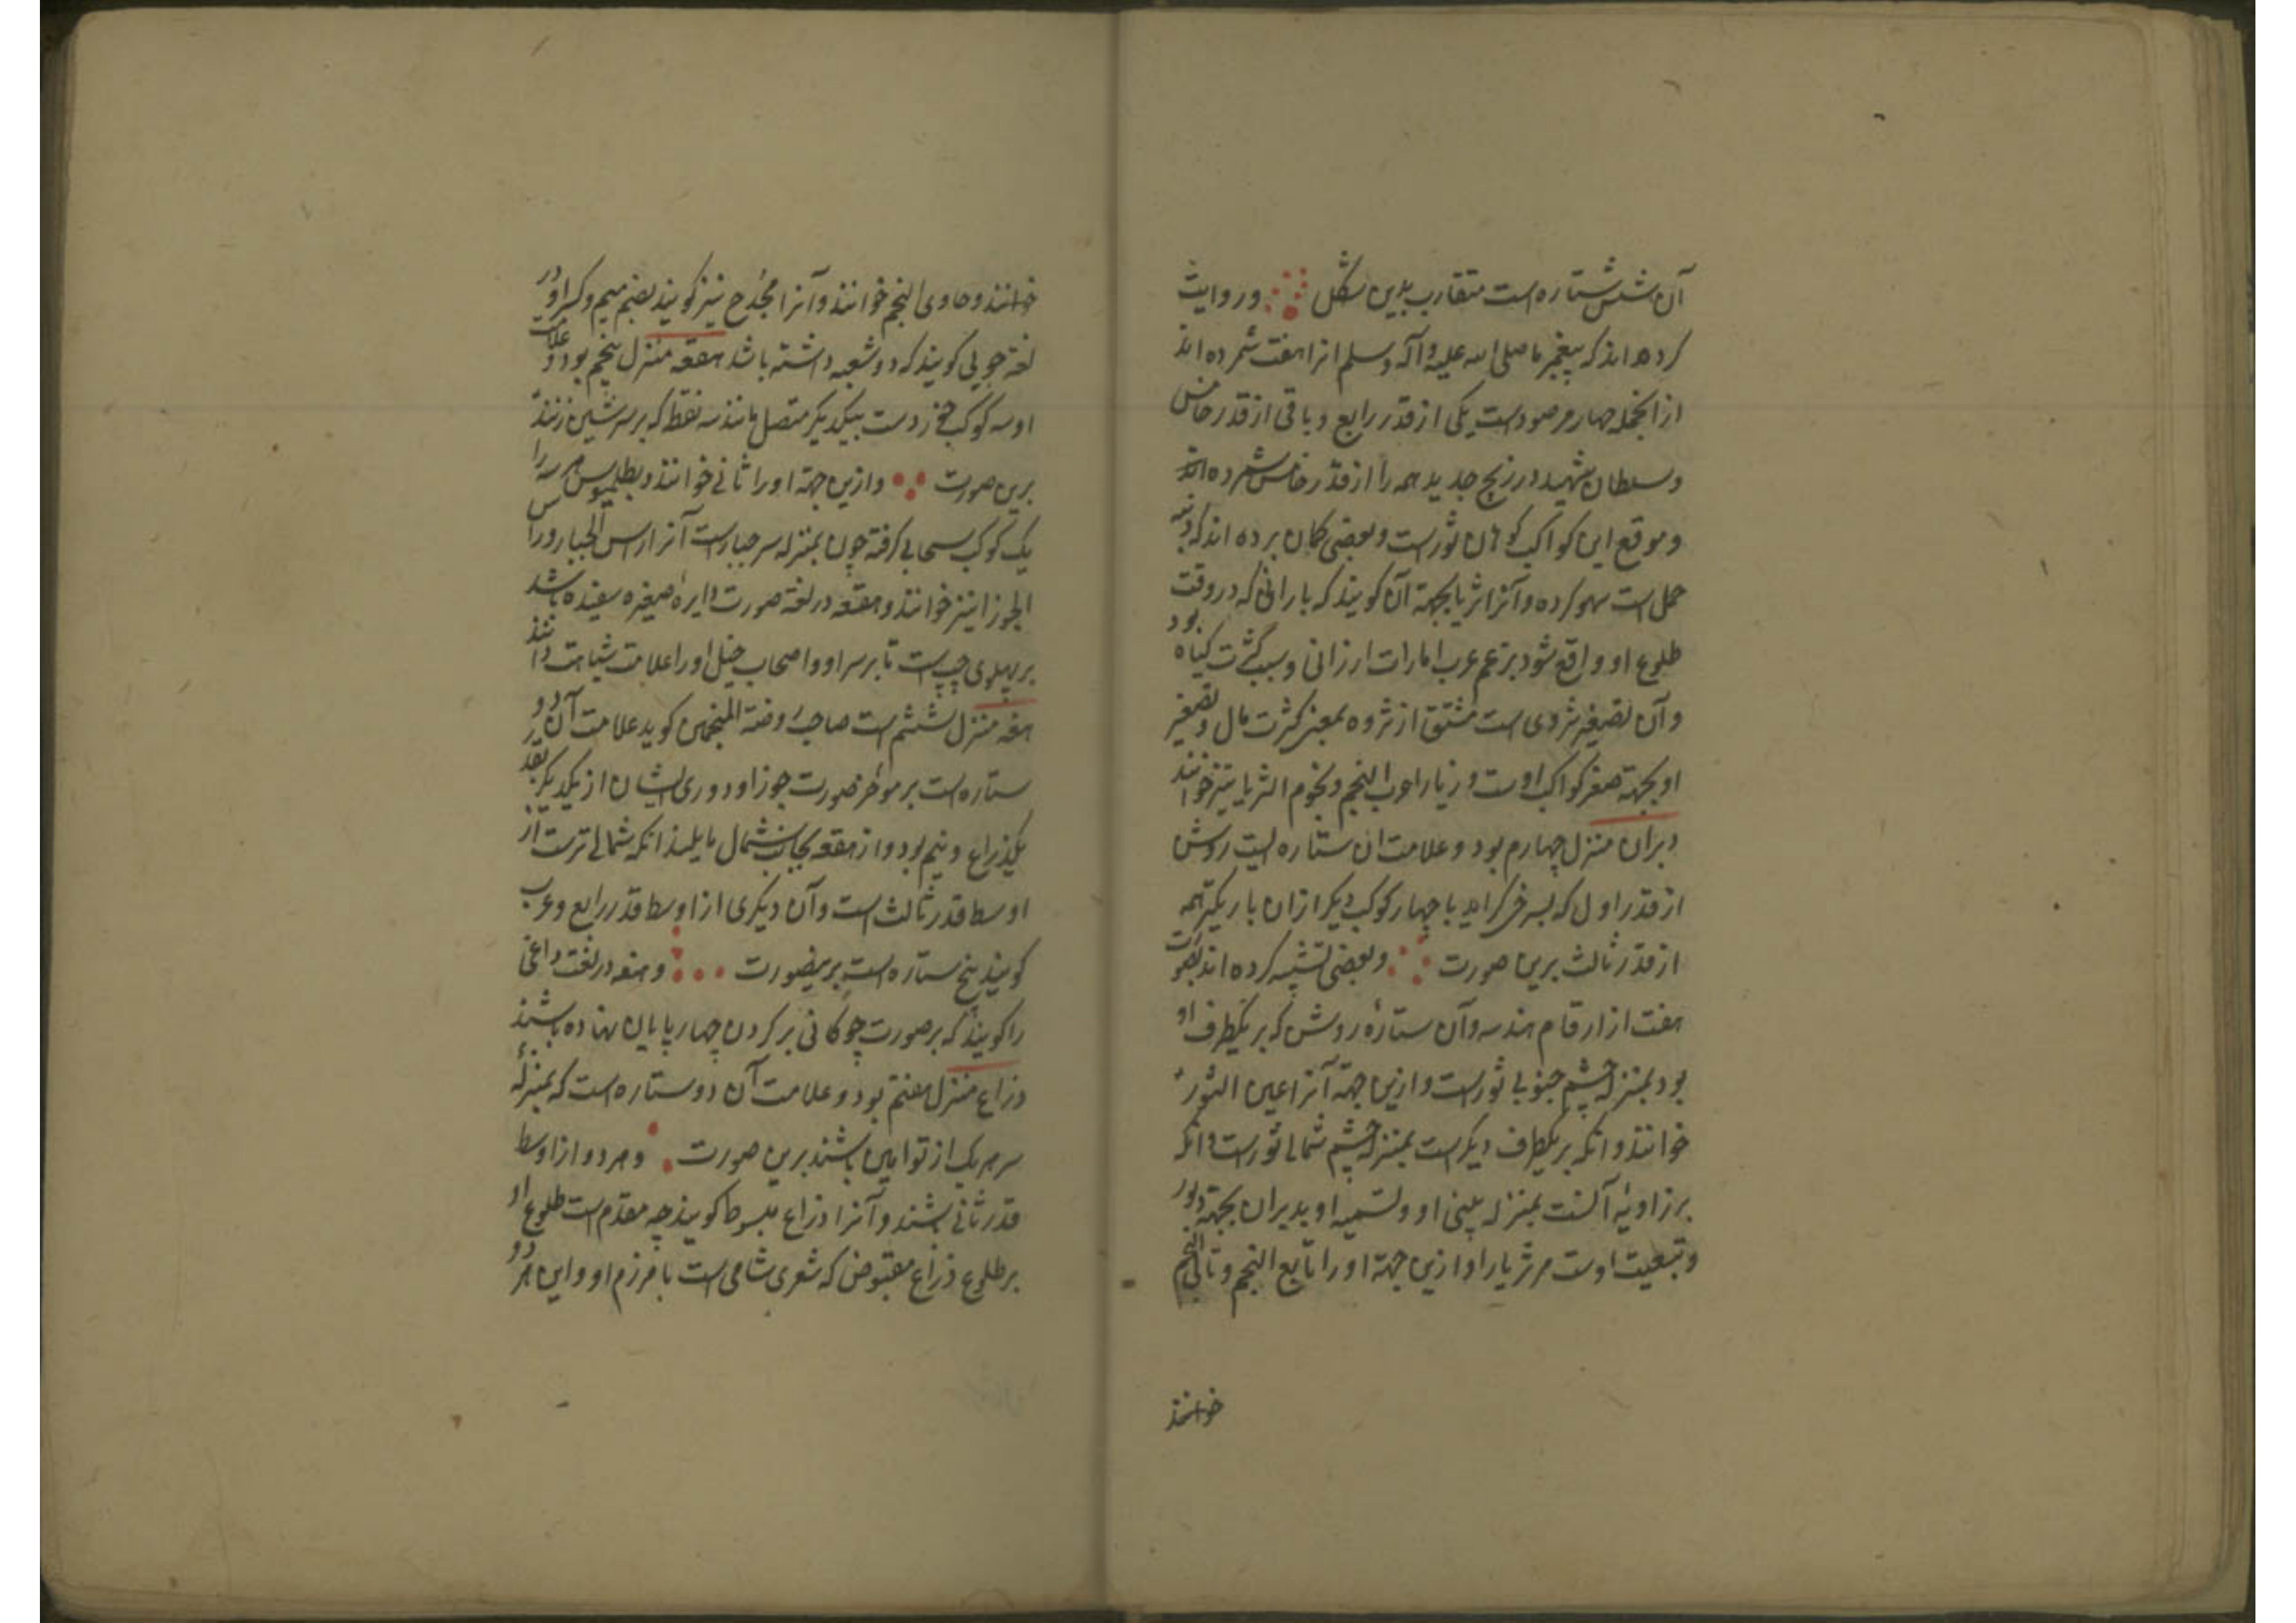 آن شش ستاره است متقارب بدین شکل وروایت
کرده اند که پیغمبر ما صلی الله علیه وآله وسلم انرا هفت شمرده اند
ازانجمله چهار مرصودست یکی از قدر رابع و باقی از قدر خامس
وسلطان شهید در زیج جدید همه را از قدر خامس شمرده اند
و موقع این کواکب کوهان ثورست وبعضی کمان برده اند که دنبه
حمل است سهو کرده وآنرا ثریا بجهة آن کویند که بارانی که در وقت
طلوع او واقع شود بزعم عرب امارات ارزانی و سبب کثرت کیاه بود
وآن تصغیر ثروی است مشتق از ثروه بمعنی کثرت مال و تصغیر
او بجهة صغر کواکب اوست و ثریا را عرب النجم و نجوم الثریا نیز خوانند
دبران منزل چهارم بود و علامت ان ستاره ایست روشن
از قدر اول که بسرخی کراید با چهار کوکب دیکر ازان باریکتر همه
از قدر ثالث برین صورت وبعضی تشبیه کرده اند بصورت
هفت از ارقام هندسه وآن ستارهٔ روشن که بر یکطرف او
بود بمنزلهٔ چشم جنوبی ثورست و ازین جهة آنرا عین الثور
خوانند و انکه بر یکطرف دیکرست بمنزلهٔ چشم شمالی ثورست و انکه
بر زاویهٔ آنست بمنزله بینی او و تسمیه او بدبران بجهة دبور
و تبعیت اوست مر ثریا را و ازین جهة اورا تابع النجم و تالی النجم
خوانند
خوانند وحادی النجم خوانند وآنرا مجدح نیز کویند بضم میم وکسر او در
لغة چوبی کویند که دو شعبه داشته باشد هقعه منزل پنجم بود و علامت
او سه کوکب خردست بیکدیکر متصل مانند سه نقط که بر سر شین زنند
برین صورت وازین جهة اورا ثافی خوانند و بطلمیوس هر سه را
یک کوکب سحابی کرفته چون بمنزله سر جبارست آنرا راس الجبار وراس
الجوزا نیز خوانند و هقعه در لغة صورت دایرهٔ صغیره سفیده باشد
بر پهلوی چپ است تا برسر او و اصحاب خیل اورا علامت شیاهت دانند
هنعه منزل ششم است صاحب روضة المنجمین کوید علامت آن دو
ستاره است بر موخر صورت جوزا و دوری ایشان از یکدیکر بقدر
یکذراع و نیم بود و از هقعه بجانب شمال مایلند انکه شمالی ترست از
اوسط قدر ثالث است وآن دیکری از اوسط قدر رابع و عرب
کویند پنج ستاره است برینصورت و هنعه در لغت داغی
را کویند که بر صورت چوکانی بر کردن چهارپایان نهاده باشند
ذراع منزل هفتم بود و علامت آن دو ستاره است که بمنزلهٔ
سر هر یک از توامین باشند برین صورت وهر دو از اوسط
قدر ثانی باشند و آنرا ذراع مبسوطا کویند چه مقدم است طلوع او
بر طلوع ذراع مقبوض که شعری شامی است با مرزم او و این هر دو